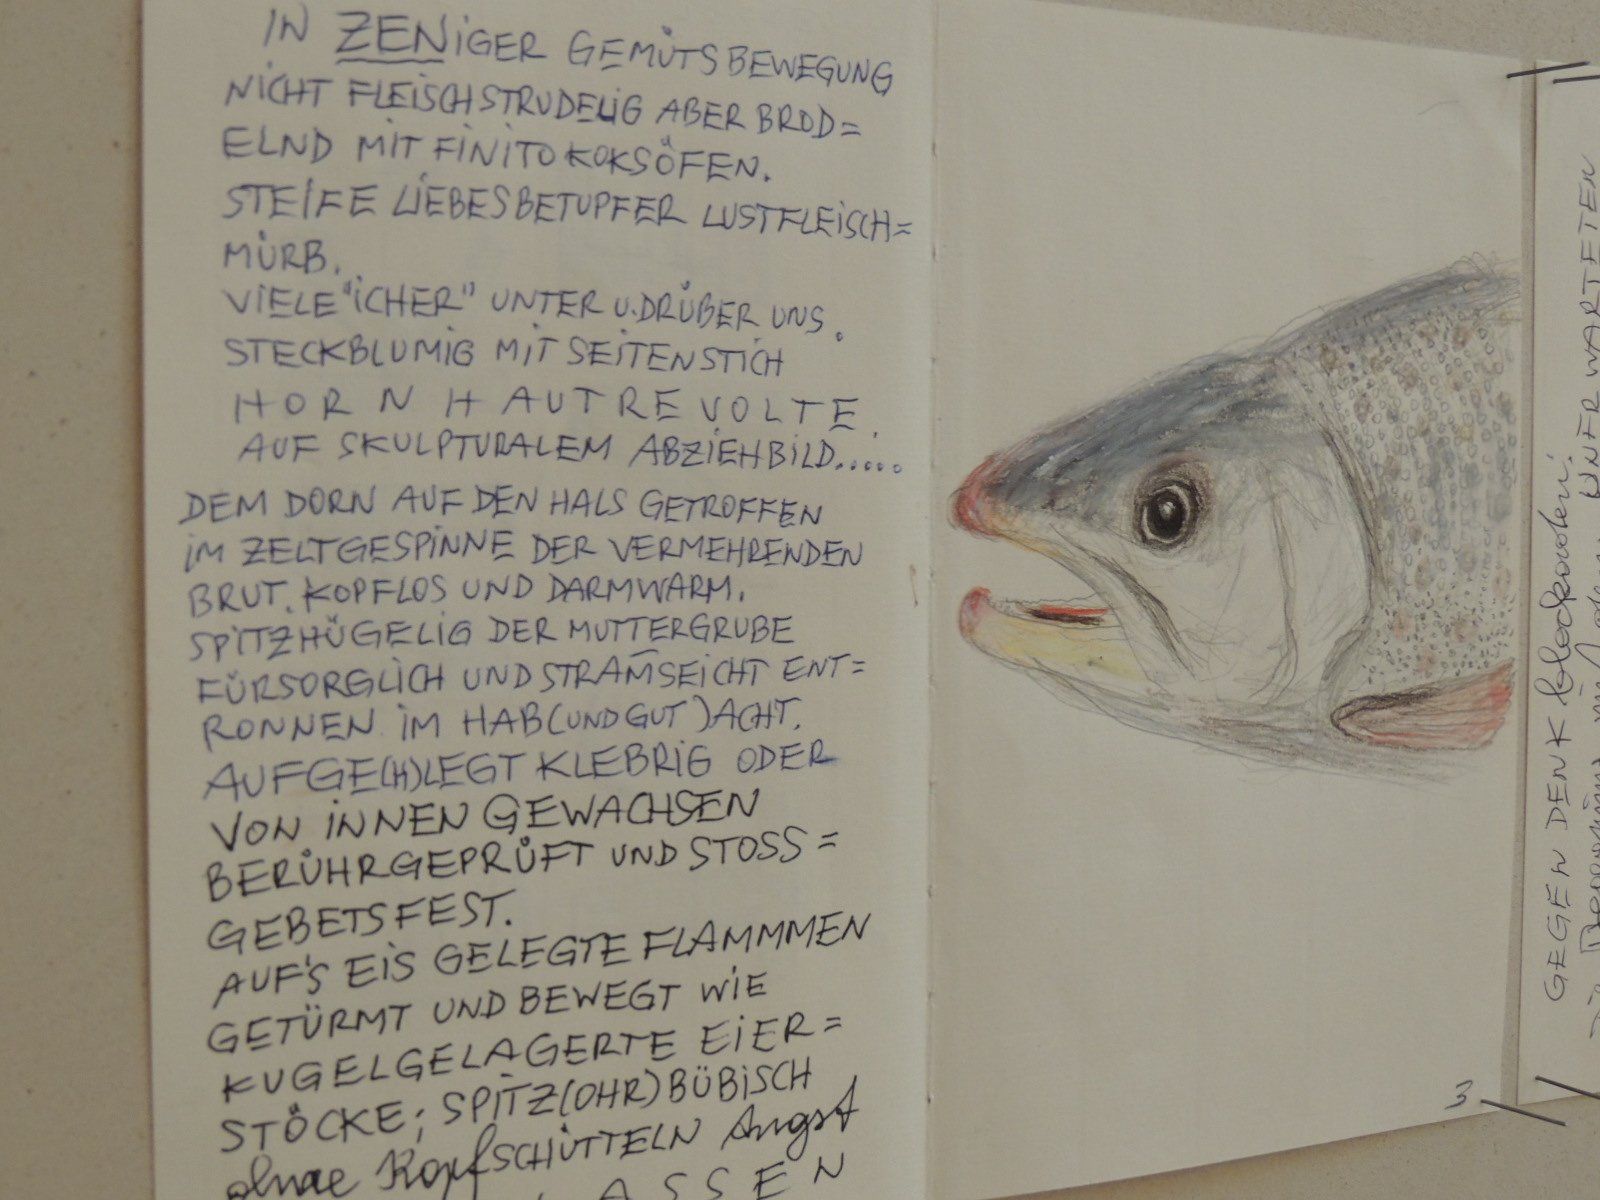 IN ZENiGER GEMÜTSBEWEGUNG
NICHT FLEISCHSTRUDELIG ABER BROD=
ELND MIT FINITO KOKSÖFEN.
STEIFE LIEBESBETUPFER LUSTFLEISCH=
MÜRB.
VIELE "ICHER" UNTER U. DRÜBER UNS.
STECKBLUMIG MIT SEITENSTICH
HORNHAUTREVOLTE.
AUF SKULPTURALEM ABZIEHBILD.....
DEM DORN AUF DEN HALS GETROFFEN
IM ZELTGESPINNE DER VERMEHRENDEN
BRUT. KOPFLOS UND DARMWARM.
SPITZHÜGELIG DER MUTTERGRUBE
FÜRSORGLICH UND STRAMSEICHT ENT=
RONNEN IM HAB(UND GUT)ACHT.
AUFGE(H)LEGT KLEBRIG ODER
VON INNEN GEWACHSEN
BERÜHRGEPRÜFT UND STOSS=
GEBETSFEST.
AUF'S EIS GELEGTE FLAMMMEN
GETÜRMT UND BEWEGT WIE
KUGELGELAGERTE EIER=
STÖCKE; SPITZ(OHR)BÜBISCH
ohne KopfSCHÜTTELN Angst
ASSEN
3
GEGEN DENK
UNERWARTETEN